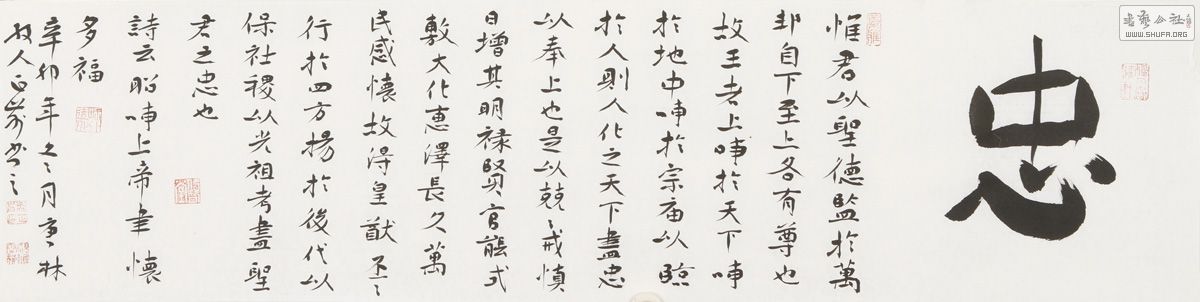 忠
惟君以聖德監於萬
邦自下至上各有尊也
故王者上事於天下事
於地中事於宗庙以臨
於人則人化之天下盡忠
以奉上也是以兢々戒慎
日增其明禄賢官能式
敷大化惠澤長久萬
民感懷故得皇猷丕々
行於四方揚於後代以
保社稷以光祖考盡聖
君之忠也
詩云昭事上帝聿懷
多福
辛卯年冬月林
散人書之
書藝公社
WWW.SHUFA.ORG